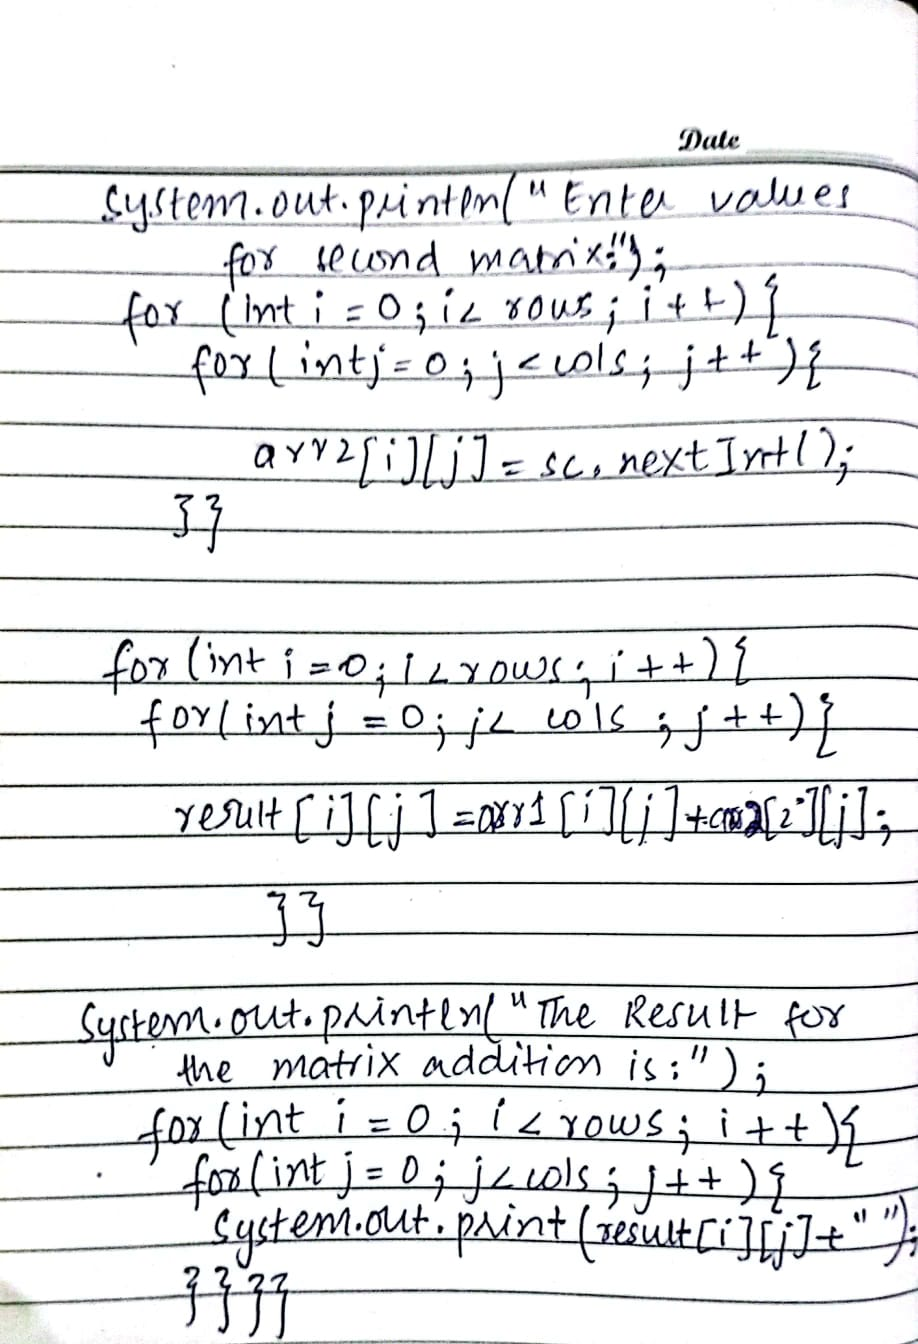 Date
System.out.println("Enter values
for second matrix:");
for (int i = 0; i< rows; i++){
for(int j=0; j<cols; j++){
arr2[i][j] = sc.nextInt();
}}
for (int i =0; i<rows; i++){
for(int j = 0; j< cols ; j++){
result [i][j] =arr1 [i][j]+arr2[i][j];
}}
System.out.println("The Result for
the matrix addition is:");
for (int i = 0; i < rows; i++){
for(int j = 0; j<cols; j++){
System.out.print(result[i][j]+" ");
}}}}